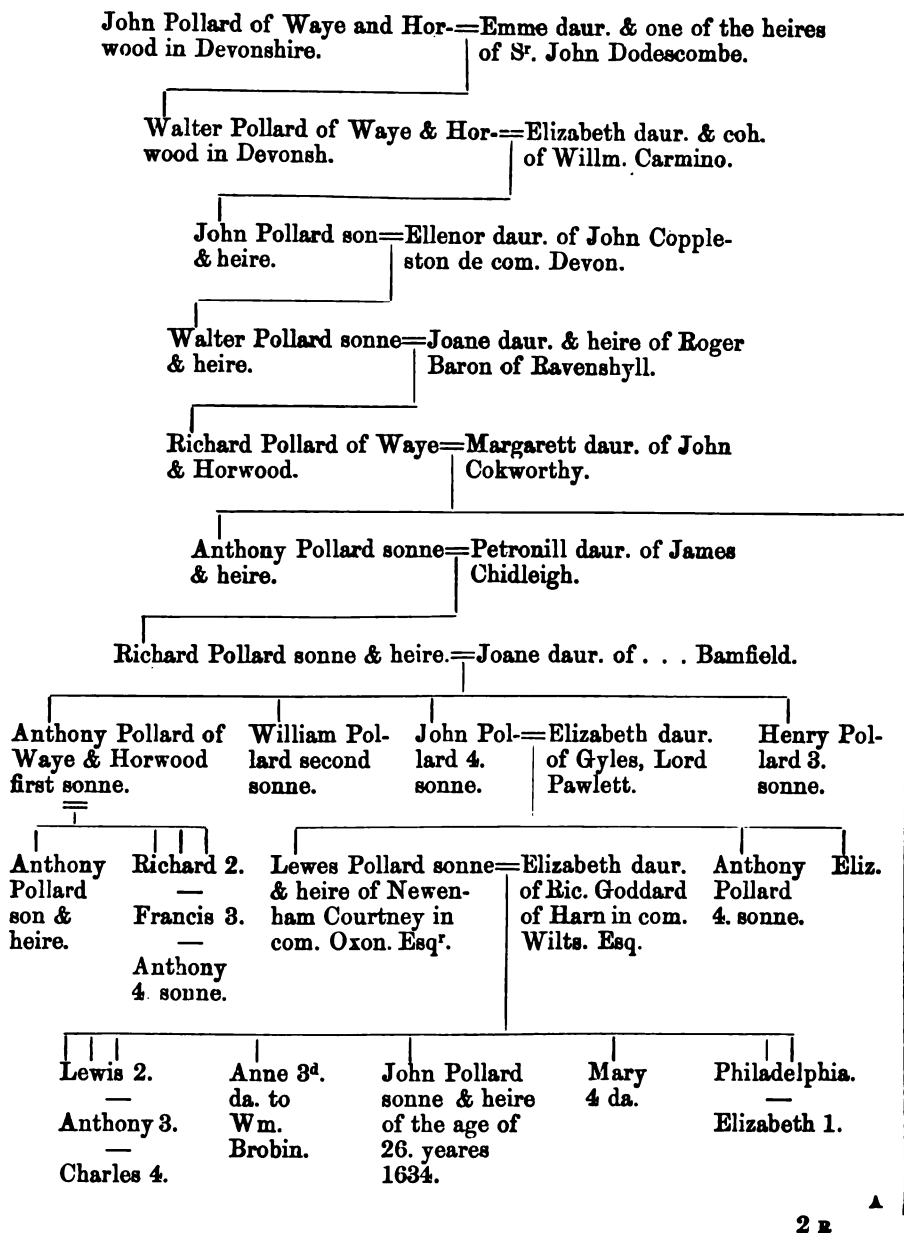 John Pollard of Waye and Hor-=Emme daur. & one of the heires
wood in Devonshire.
of Sr. John Dodescombe.
Walter Pollard of Waye & Hor-=Elizabeth daur. & coh.
wood in Devonsh.
of Willm. Carmino.
John Pollard son=Ellenor daur. of John Copple-
& heire.
ston de com. Devon.
Walter Pollard sonne=Joane daur. & heire of Roger
& heire.
Baron of Ravenshyll.
Richard Pollard of Waye=Margarett daur. of John
& Horwood.
Cokworthy.
Anthony Pollard sonne=Petronill daur. of James
& heire.
Chidleigh.
Richard Pollard sonne & heire.=Joane daur. of . . . Bamfield.
Anthony Pollard of
Waye & Horwood
first sonne.
William Pol-
lard second
sonne.
John Pol-=
lard 4.
sonne.
Elizabeth daur.
of Gyles, Lord
Pawlett.
Henry Pol-
lard 3.
sonne.
Anthony
Pollard
son &
heire.
Richard 2.
—
Francis 3.
—
Anthony
4. sonne.
Lewes Pollard sonne=
& heire of Newen-
ham Courtney in
com. Oxon. Esqr.
Elizabeth daur.
of Ric. Goddard
of Harn in com.
Wilts. Esq.
Anthony
Pollard
4. sonne.
Eliz.
Lewis 2.
—
Anthony 3.
—
Charles 4.
Anne 3d.
da. to
Wm.
Brobin.
John Pollard
sonne & heire
of the age of
26. yeares
1634.
Mary
4 da.
Philadelphia.
—
Elizabeth 1.
A
2 R